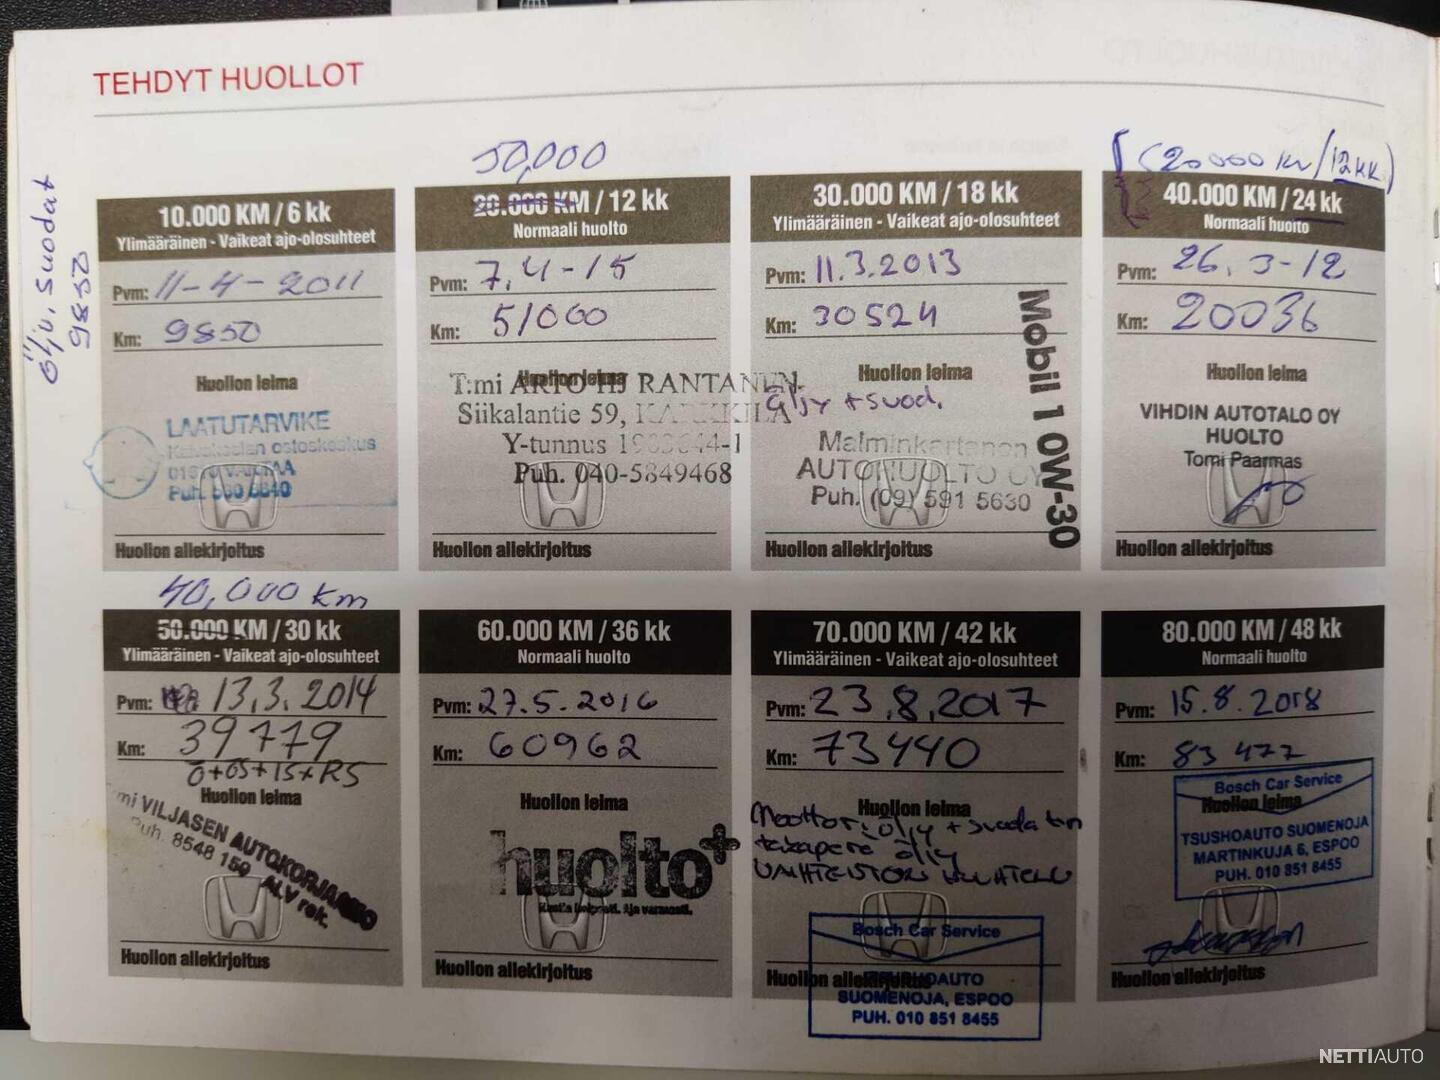 TEHDYT HUOLLOT
öljy, suodat
9850
10.000 KM / 6 kk
Ylimääräinen - Vaikeat ajo-olosuhteet
Pvm: 11-4-2011
Km: 9850
Huollon leima
LAATUTARVIKE
ostoskeskus
Huollon allekirjoitus
50,000
20.000 KM / 12 kk
Normaali huolto
Pvm: 7.4-15
Km: 51000
Huollon leima
T:mi RANTANEN
Siikalantie 59, KARKKILA
Y-tunnus
Puh. 040-5849468
Huollon allekirjoitus
30.000 KM / 18 kk
Ylimääräinen - Vaikeat ajo-olosuhteet
Pvm: 11.3.2013
Km: 30524
Huollon leima
Öljy + suod.
Malminkartanon
AUTOHUOLTO OY
Puh. (09) 591 5630
Mobil 1 0W-30
Huollon allekirjoitus
(20000 km/12kk)
40.000 KM / 24 kk
Normaali huolto
Pvm: 26.3-12
Km: 20036
Huollon leima
VIHDIN AUTOTALO OY
HUOLTO
Tomi Paarmas
Huollon allekirjoitus
40,000 km
50.000 KM / 30 kk
Ylimääräinen - Vaikeat ajo-olosuhteet
Pvm: 13.3.2014
Km: 39779
Ö+ÖS+IS+RS
Huollon leima
VILJASEN AUTOKORJAAMO
Puh. 8548 150 ALV rek.
Huollon allekirjoitus
60.000 KM / 36 kk
Normaali huolto
Pvm: 27.5.2016
Km: 60962
Huollon leima
huolto+
Huollon allekirjoitus
70.000 KM / 42 kk
Ylimääräinen - Vaikeat ajo-olosuhteet
Pvm: 23.8.2017
Km: 73440
Huollon leima
Moottoriöljy + suodatin
takaperä öljy
Bosch Car Service
Huollon allekirjoitus
SUOMENOJA, ESPOO
PUH. 010 851 8455
80.000 KM / 48 kk
Normaali huolto
Pvm: 15.8.2018
Km: 83477
Bosch Car Service
Huollon leima
TSUSHOAUTO SUOMENOJA
MARTINKUJA 6, ESPOO
PUH. 010 851 8455
Huollon allekirjoitus
NETTIAUTO